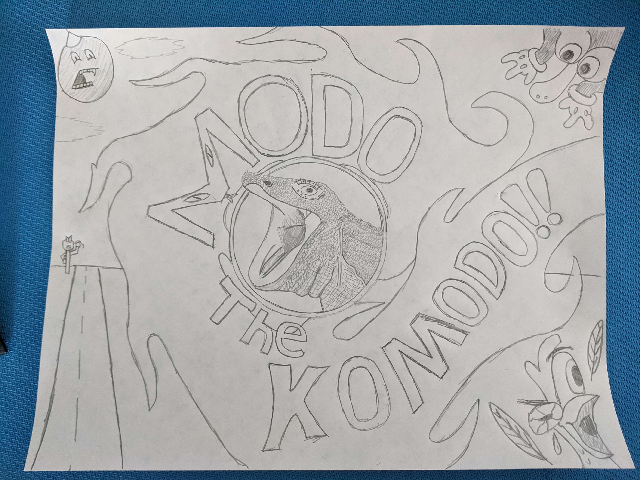 MODO
The
KOMODO!!